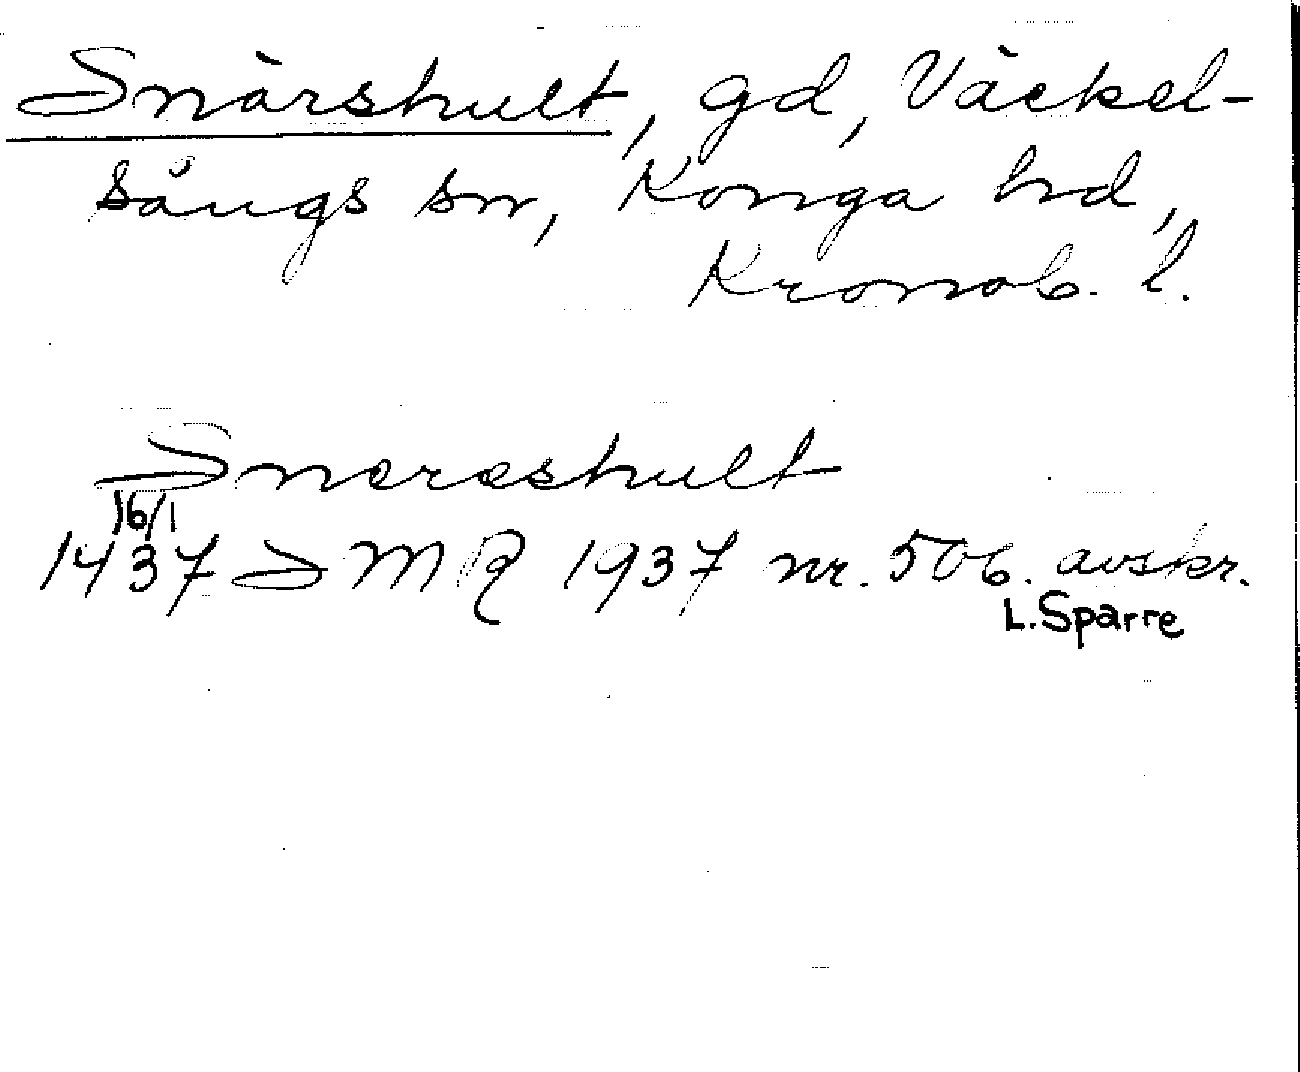 Snärshult, gd, Väckel-
sångs sn, Konga hd,
Kronob. l.
Snereshult
16/1
1437 SMR 1937 nr. 506. avskr.
L. Sparre